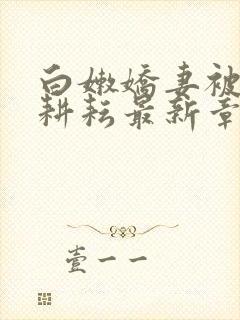 白嫩嬌妻被
耕耘最新章
壹一一